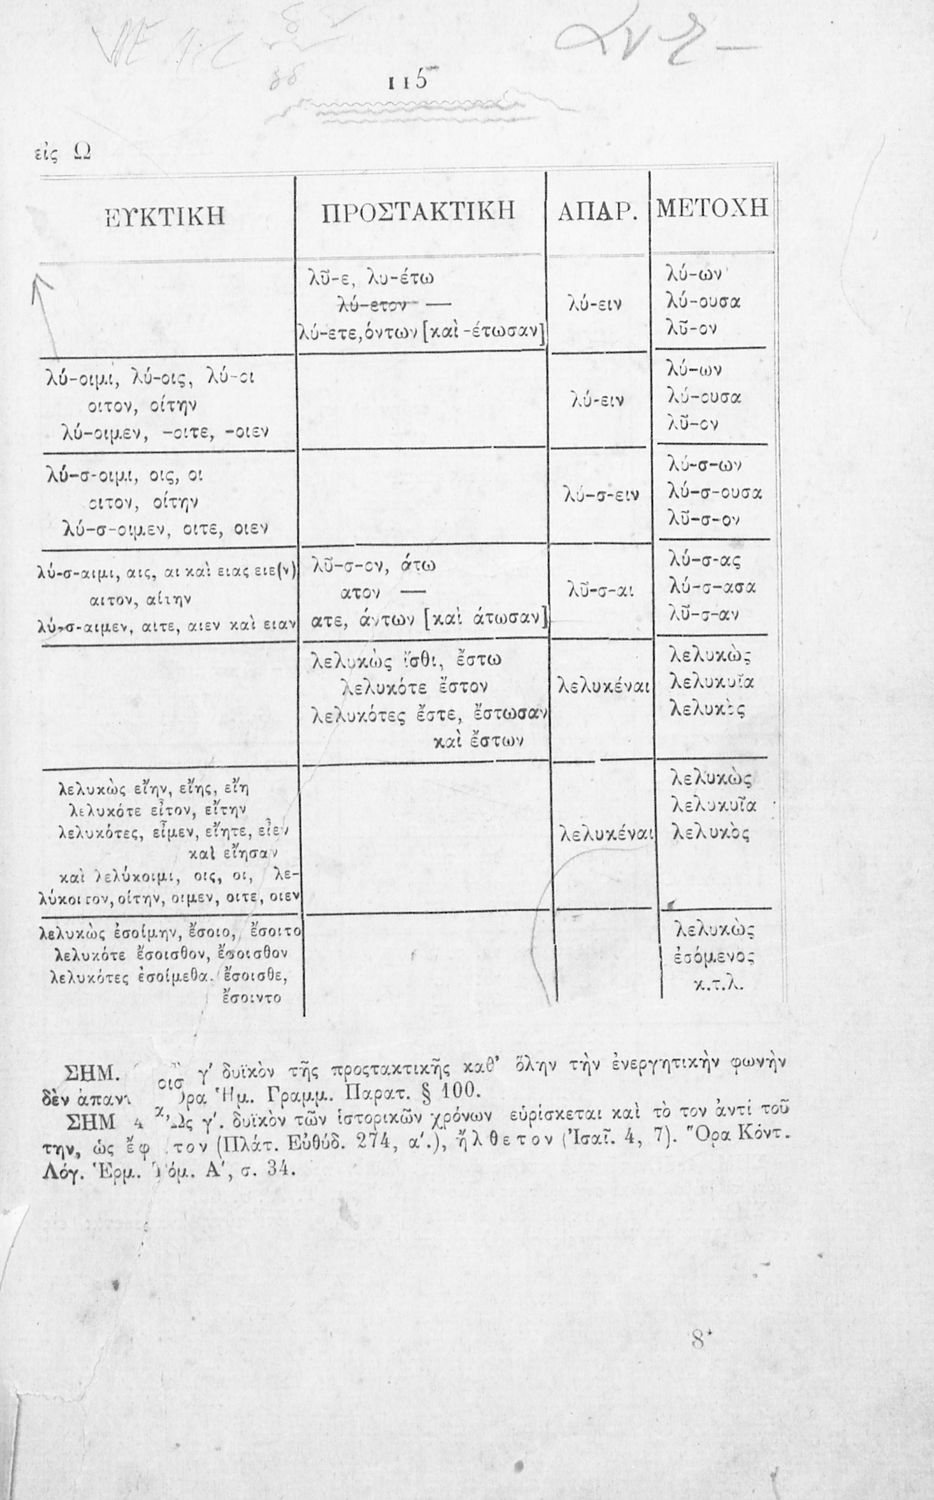 115
εἰς Ω
ΕΥΚΤΙΚΗ ΠΡΟΣΤΑΚΤΙΚΗ ΑΠΑΡ. ΜΕΤΟΧΗ
λῦ-ε, λυ-έτω
λύ-ετον —
λύ-ετε, όντων [καὶ -έτωσαν]
λύ-ειν
λύ-ων
λύ-ουσα
λῦ-ον
λύ-οιμι, λύ-οις, λύ-οι
οιτον, οίτην
λύ-οιμεν, -οιτε, -οιεν
λύ-ειν
λύ-ων
λύ-ουσα
λῦ-ον
λύ-σ-οιμι, οις, οι
οιτον, οίτην
λύ-σ-οιμεν, οιτε, οιεν
λύ-σ-ειν
λύ-σ-ων
λύ-σ-ουσα
λῦ-σ-ον
λύ-σ-αιμι, αις, αι καὶ ειας ειε(ν)
αιτον, αίτην
λύ-σ-αιμεν, αιτε, αιεν καὶ ειαν
λῦ-σ-ον, άτω
ατον —
ατε, άντων [καὶ άτωσαν]
λῦ-σ-αι
λύ-σ-ας
λύ-σ-ασα
λῦ-σ-αν
λελυκὼς ἴσθι, ἔστω
λελυκότε ἔστον
λελυκότες ἔστε, ἔστωσαν
καὶ ἔστων
λελυκέναι
λελυκὼς
λελυκυῖα
λελυκὸς
λελυκὼς εἴην, εἴης, εἴη
λελυκότε εἶτον, εἴτην
λελυκότες, εἶμεν, εἴητε, εἶεν
καὶ εἴησαν
καὶ λελύκοιμι, οις, οι, λε-
λύκοιτον, οίτην, οιμεν, οιτε, οιεν
λελυκέναι
λελυκὼς
λελυκυῖα
λελυκὸς
λελυκὼς ἐσοίμην, ἔσοιο, ἔσοιτο
λελυκότε ἔσοισθον, ἔσοισθον
λελυκότες ἐσοίμεθα. ἔσοισθε,
ἔσοιντο
λελυκὼς
ἐσόμενος
κ.τ.λ.
ΣΗΜ. γ' δυϊκὸν τῆς προςτακτικῆς καθ' ὅλην τὴν ἐνεργητικὴν φωνὴν
δὲν Ὅρα Ἡμ. Γραμμ. Παρατ. § 100.
ΣΗΜ Ὡς γ'. δυϊκὸν τῶν ἱστορικῶν χρόνων εὑρίσκεται καὶ τὸ τον ἀντὶ τοῦ
την, ὡς ἔφ τον (Πλάτ. Εὐθύδ. 274, α'.), ἤλθετον (Ἰσαῖ. 4, 7). Ὅρα Κόντ.
Λόγ. Ἑρμ. Τόμ. Α', σ. 34.
8*